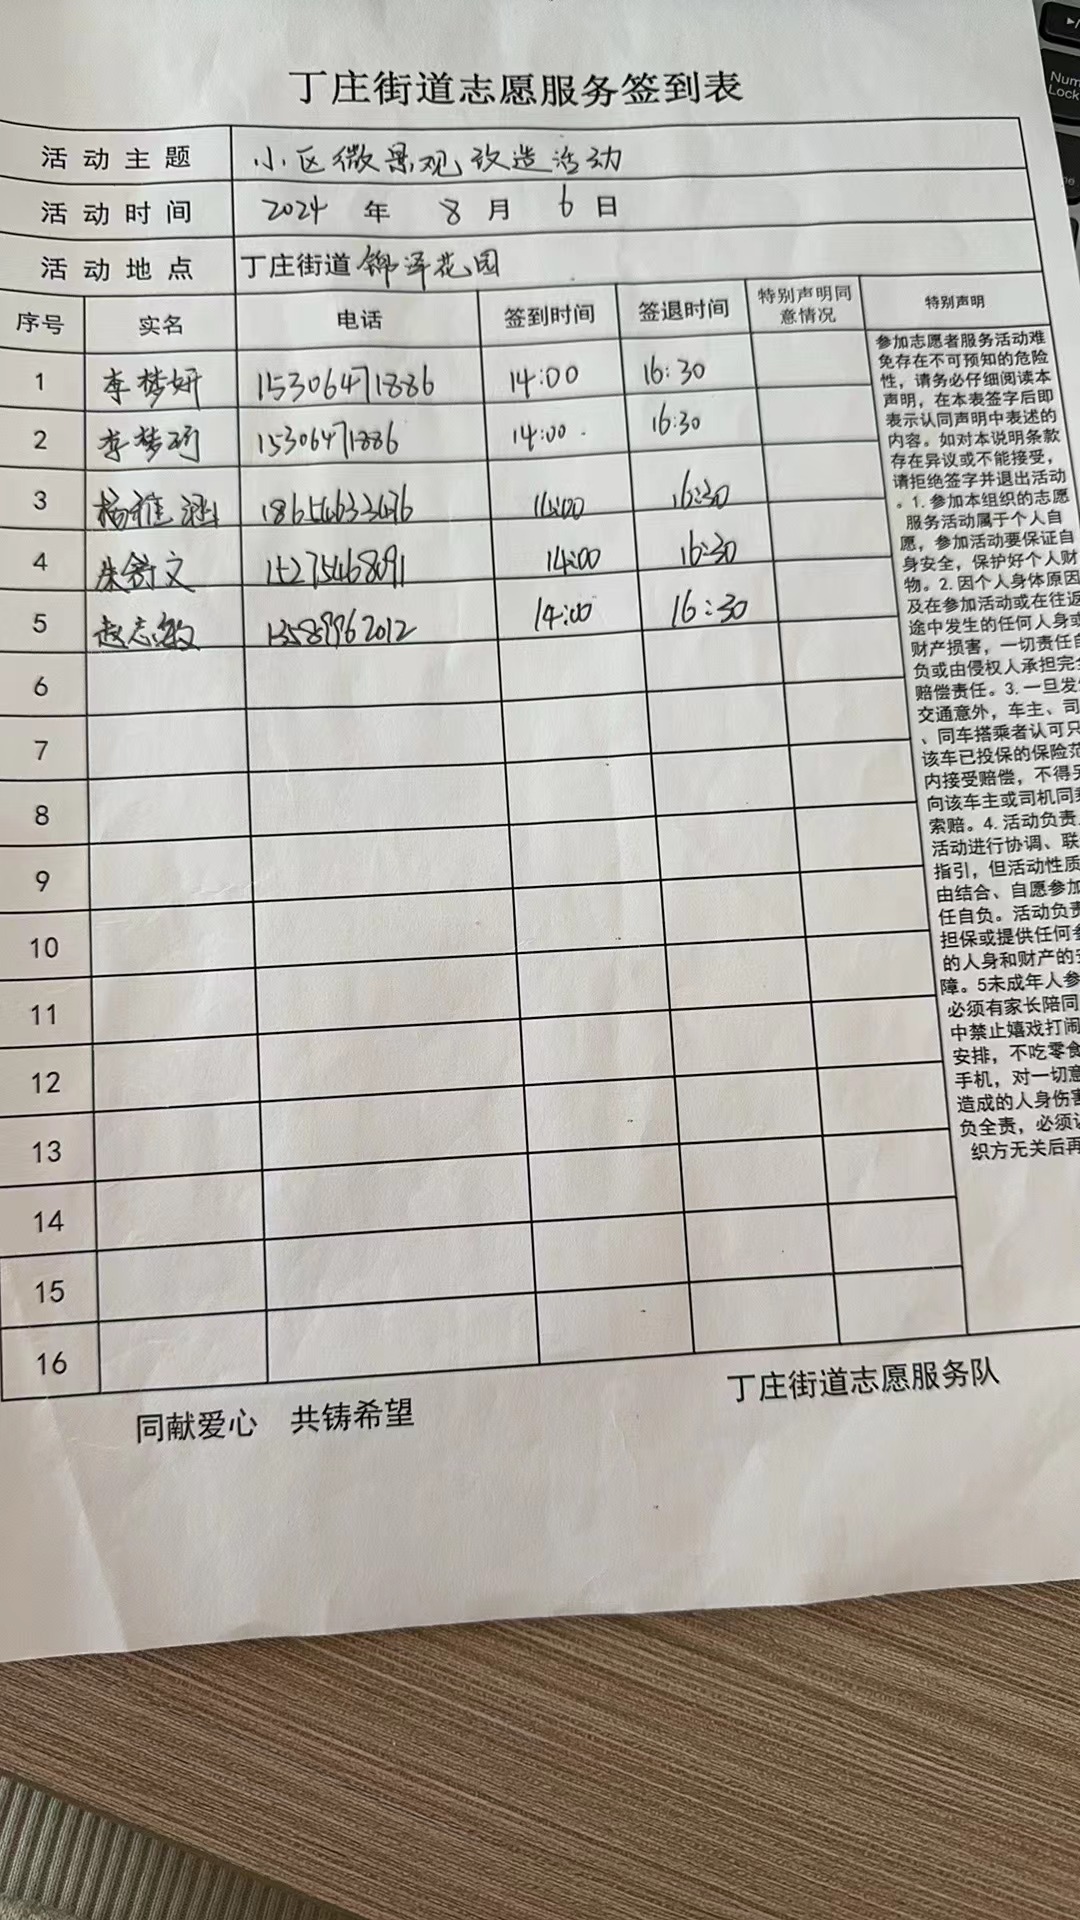 丁庄街道志愿服务签到表
活动主题 小区微景观改造活动
活动时间 2024 年 8 月 6 日
活动地点 丁庄街道锦泽花园
序号 实名 电话 签到时间 签退时间 特别声明同意情况 特别声明
1 李梦妍 15306471886 14:00 16:30
2 李梦 15306471886 14:00 16:30
3 杨雅涵 14:00 16:30
4 朱舒文 15275468091 14:00 16:30
5 赵志敏 13589962012 14:00 16:30
6
7
8
9
10
11
12
13
14
15
16
参加志愿者服务活动难
免存在不可预知的危险
性，请务必仔细阅读本
声明，在本表签字后即
表示认同声明中表述的
内容。如对本说明条款
存在异议或不能接受，
请拒绝签字并退出活动
。1.参加本组织的志愿
服务活动属于个人自
愿，参加活动要保证自
身安全，保护好个人财
物。2.因个人身体原因
及在参加活动或在往返
途中发生的任何人身或
财产损害，一切责任自
负或由侵权人承担完全
赔偿责任。3.一旦发生
交通意外，车主、司
、同车搭乘者认可只
该车已投保的保险范
内接受赔偿，不得另
向该车主或司机同乘
索赔。4.活动负责
活动进行协调、联
指引，但活动性质
由结合、自愿参加
任自负。活动负责
担保或提供任何参
的人身和财产的
障。5未成年人参
必须有家长陪同
中禁止嬉戏打闹
安排，不吃零食
手机，对一切意
造成的人身伤害
负全责，必须认
织方无关后再
同献爱心 共铸希望
丁庄街道志愿服务队
Num
Lock